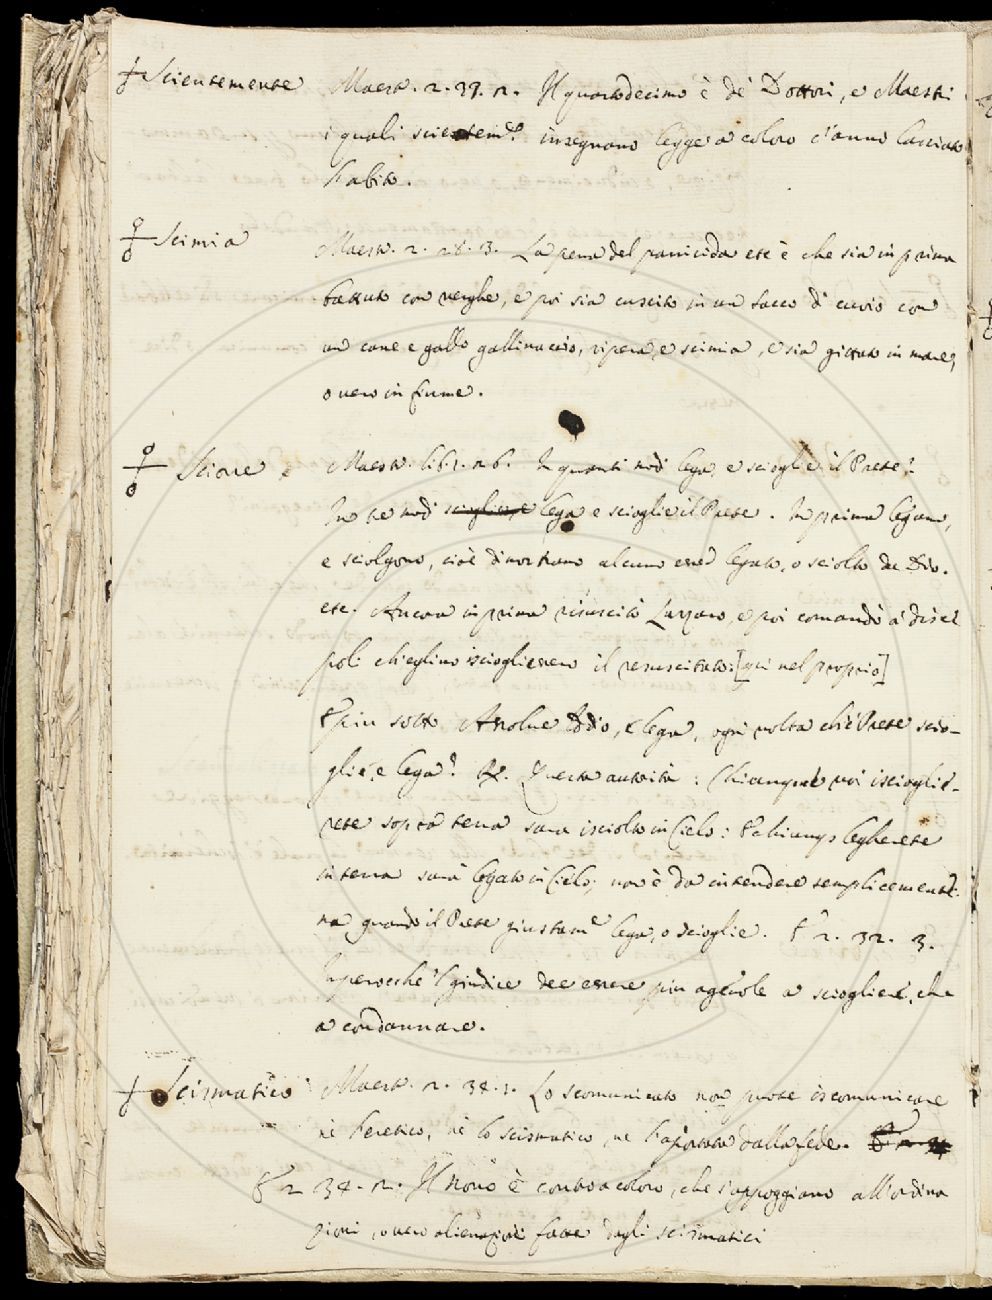 Scientemente Maestr. 2. 39. 2. Il quartodecimo è de' Dottori, e Maestri
i quali scientem.e insegnano legge a coloro c'anno lasciato
l'abito.
Scimia Maestr. 2. 28. 3. La pena del parricida etc è che sia in prima
battuto con verghe, e poi sia cuscito in un sacco di cuoio con
un cane e gallo gallinaccio, vipera, e scimia, e sia gittato in mare,
o vero in fiume.
Sciorre Maestr. lib. 1. 26. In quanti modi lega, e scioglie il Prete?
In tre modi scioglie, e lega e scioglie il Prete. In prima legano,
e sciolgono, cioè dimostrano alcuno essere legato, o sciolto da Dio.
etc. Ancora in prima risuscitò Lazzaro, e poi comandò a' disce
poli ch'eglino iscogliessero il resuscitato: [qui nel proprio]
E più sotto Assolve Iddio, e lega, ogni volta che 'l Prete scio-
glie, e lega? R. Questa autorità: Chiunque voi isciogli-
rete sopra terra sara isciolto in Cielo: E chiunq. legherete
in terra sarà legato in Cielo, non è da intendere semplicemente:
ma quando il Prete giustam.e lega, o scioglie. E 2. 32. 3.
Imperocchè 'l giudice dee essere più agevole a sciogliere, che
a condannare.
Scismatico Maestr. 2. 34. 1. Lo scomunicato non puote iscomunicare
nè l'eretico, nè lo scismatico, nè l'apostata dalla fede.
E 2 34. 2. Il nono è contro a coloro, che s'appoggiano all'ordina
zioni, o vero alienazioni fatte dagli scismatici